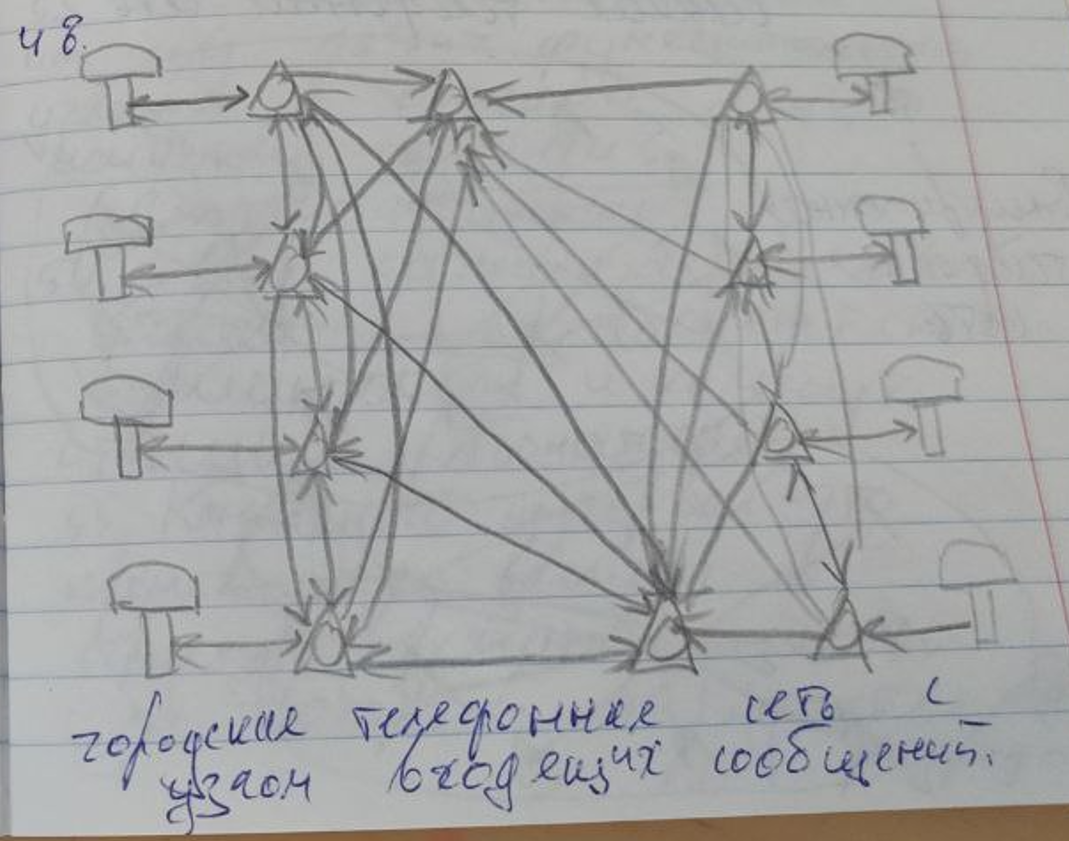 48.
городская телефонная сеть с
узлом входящих сообщений.